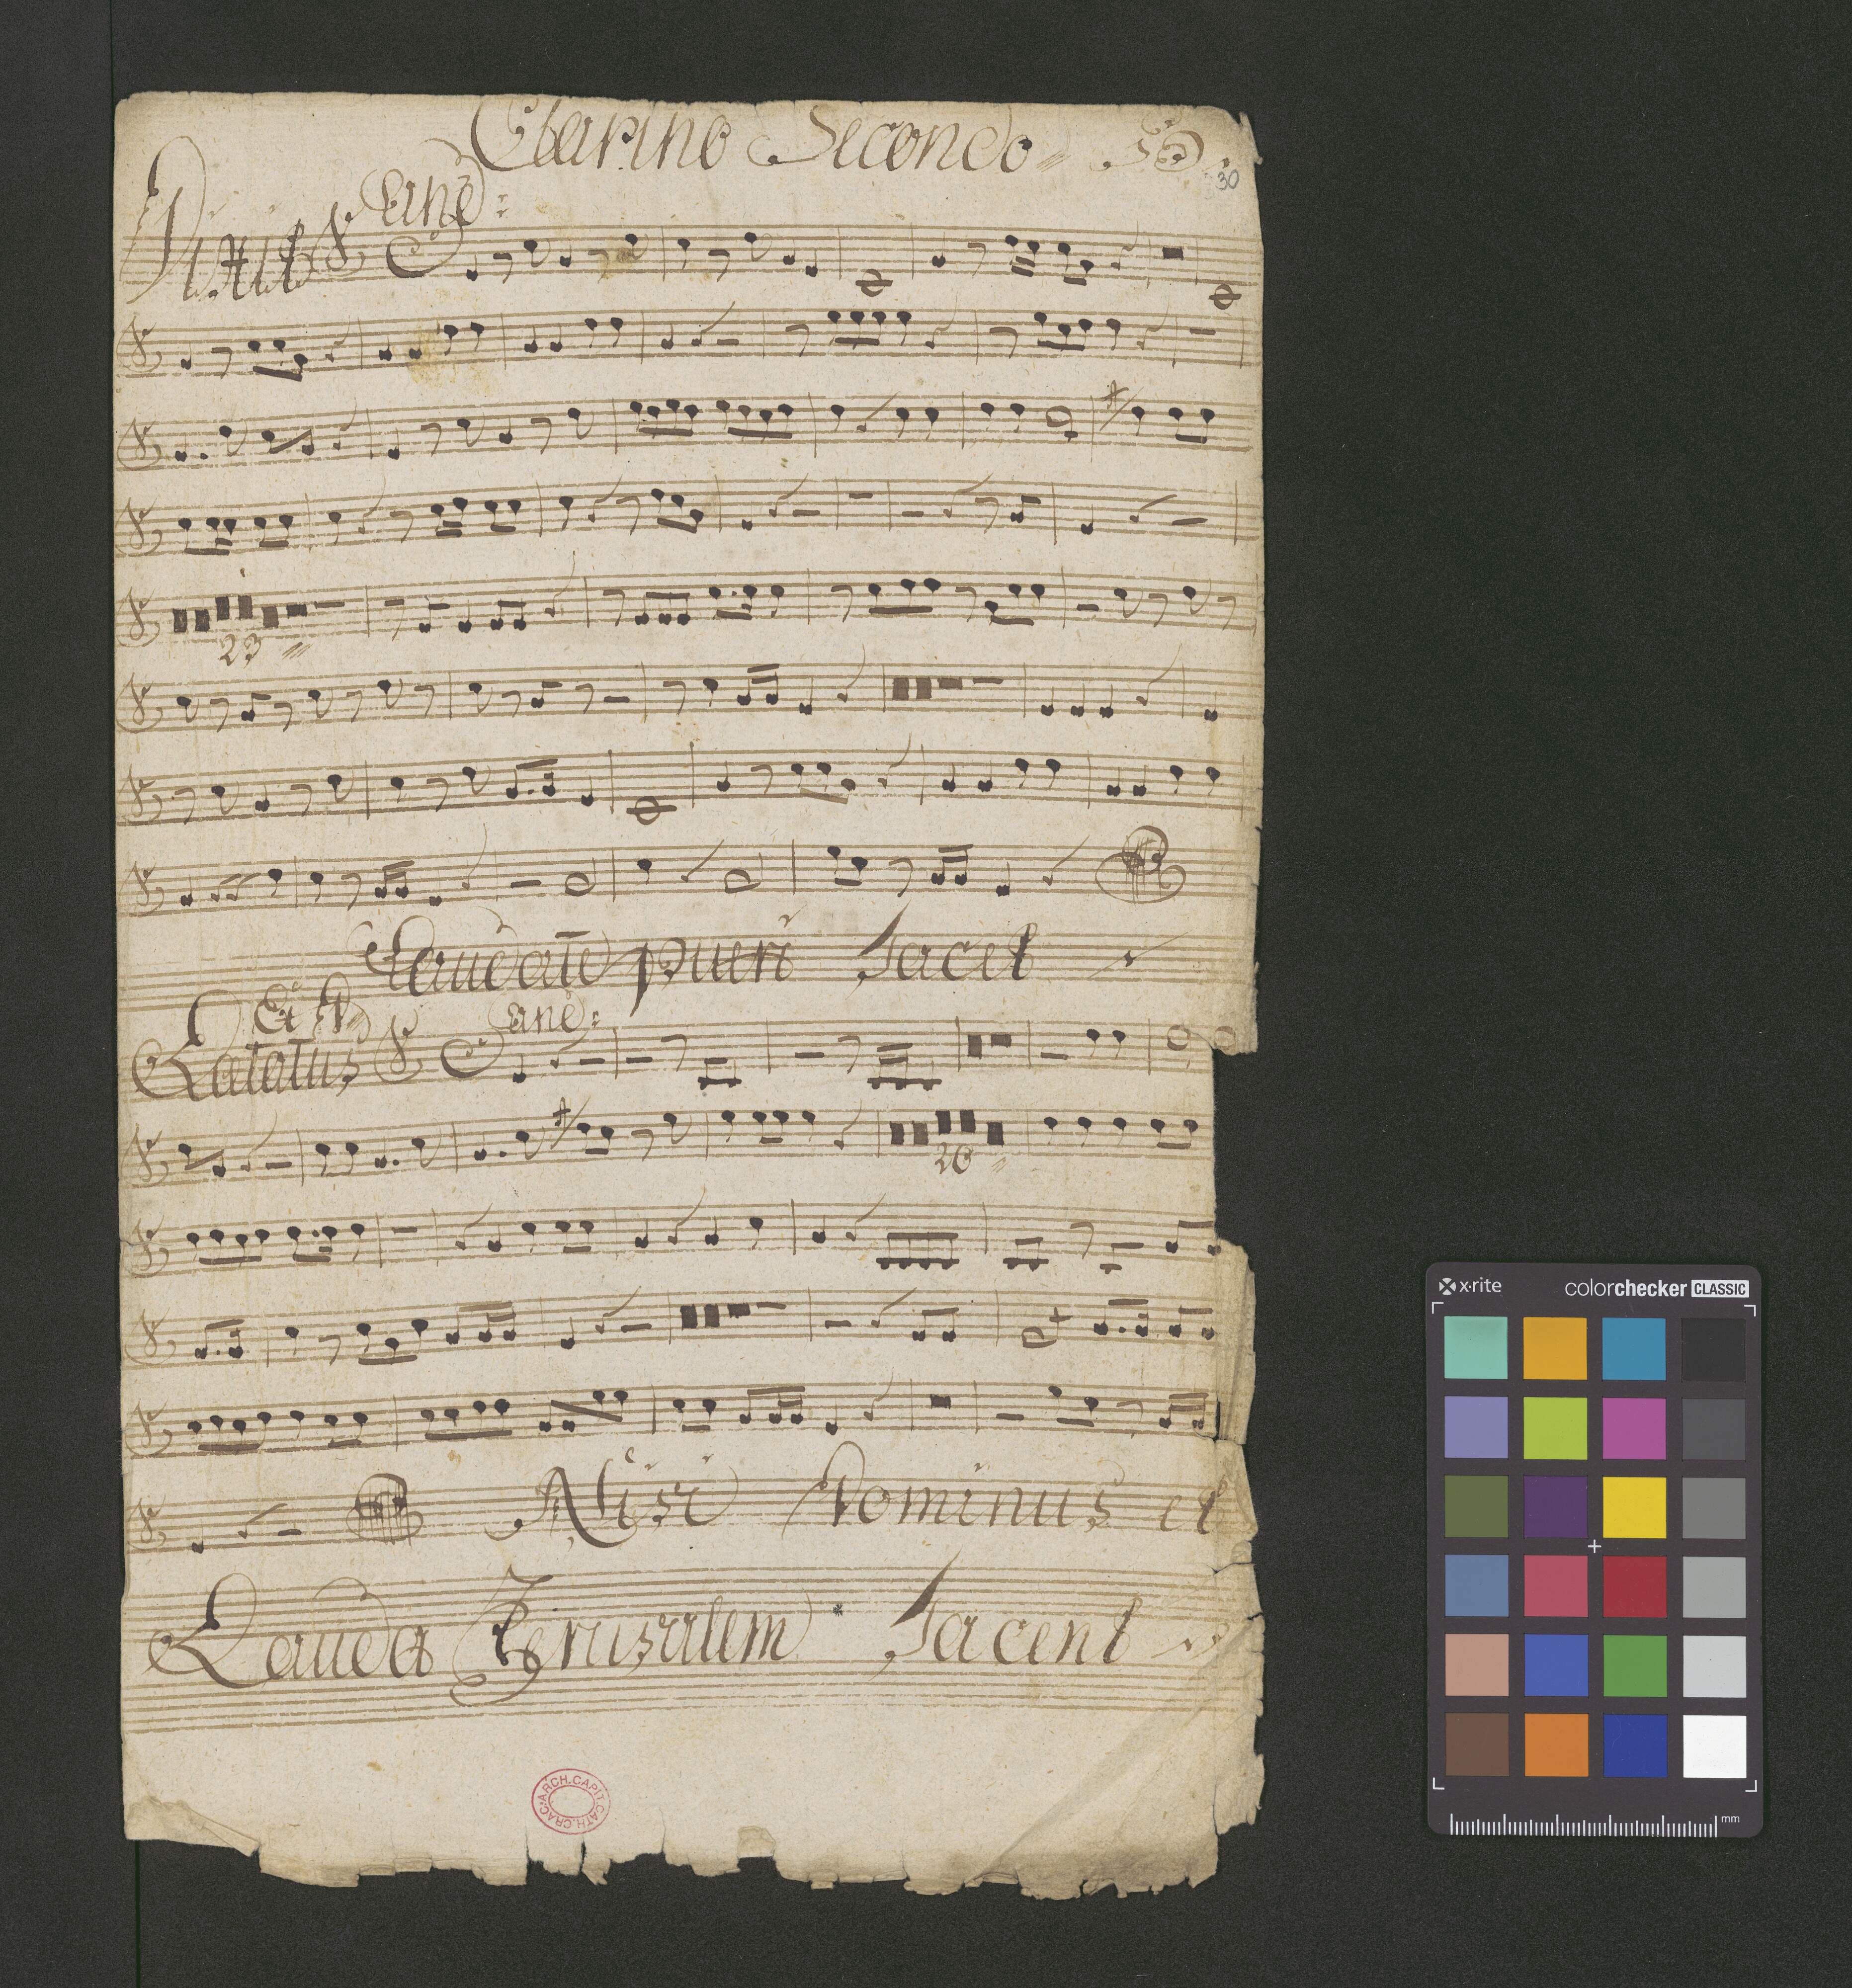 Clarino Secondo
30
Dixit
23
Laudate pueri Jacet
Lætatus
20
Nisi Dominus et
Lauda Jerusalem Jacent
ARCH.CAPIT.CATH.CRAC
x-rite
colorchecker CLASSIC
mm